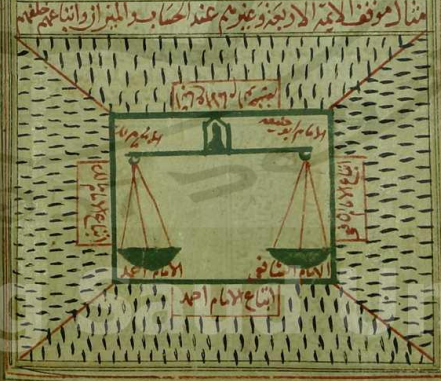 مثال موقف الايمة الاربعة وغيرهم عند الحساب والميزان واتباعهم خلفهم
الامام ابو حنيفة
الامام مالك
اتباع الامام
الامام الشافعي
الامام احمد
اتباع الامام احمد